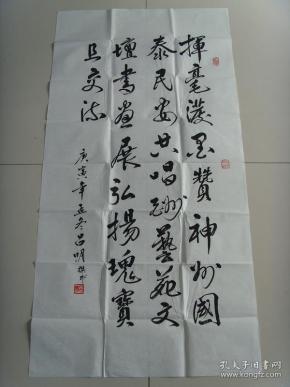 揮毫潑墨贊神州國
泰民安共唱酬藝苑文
壇書畫展弘揚瑰寶
且交流
庚寅年孟冬呂明撰書
孔夫子旧书网